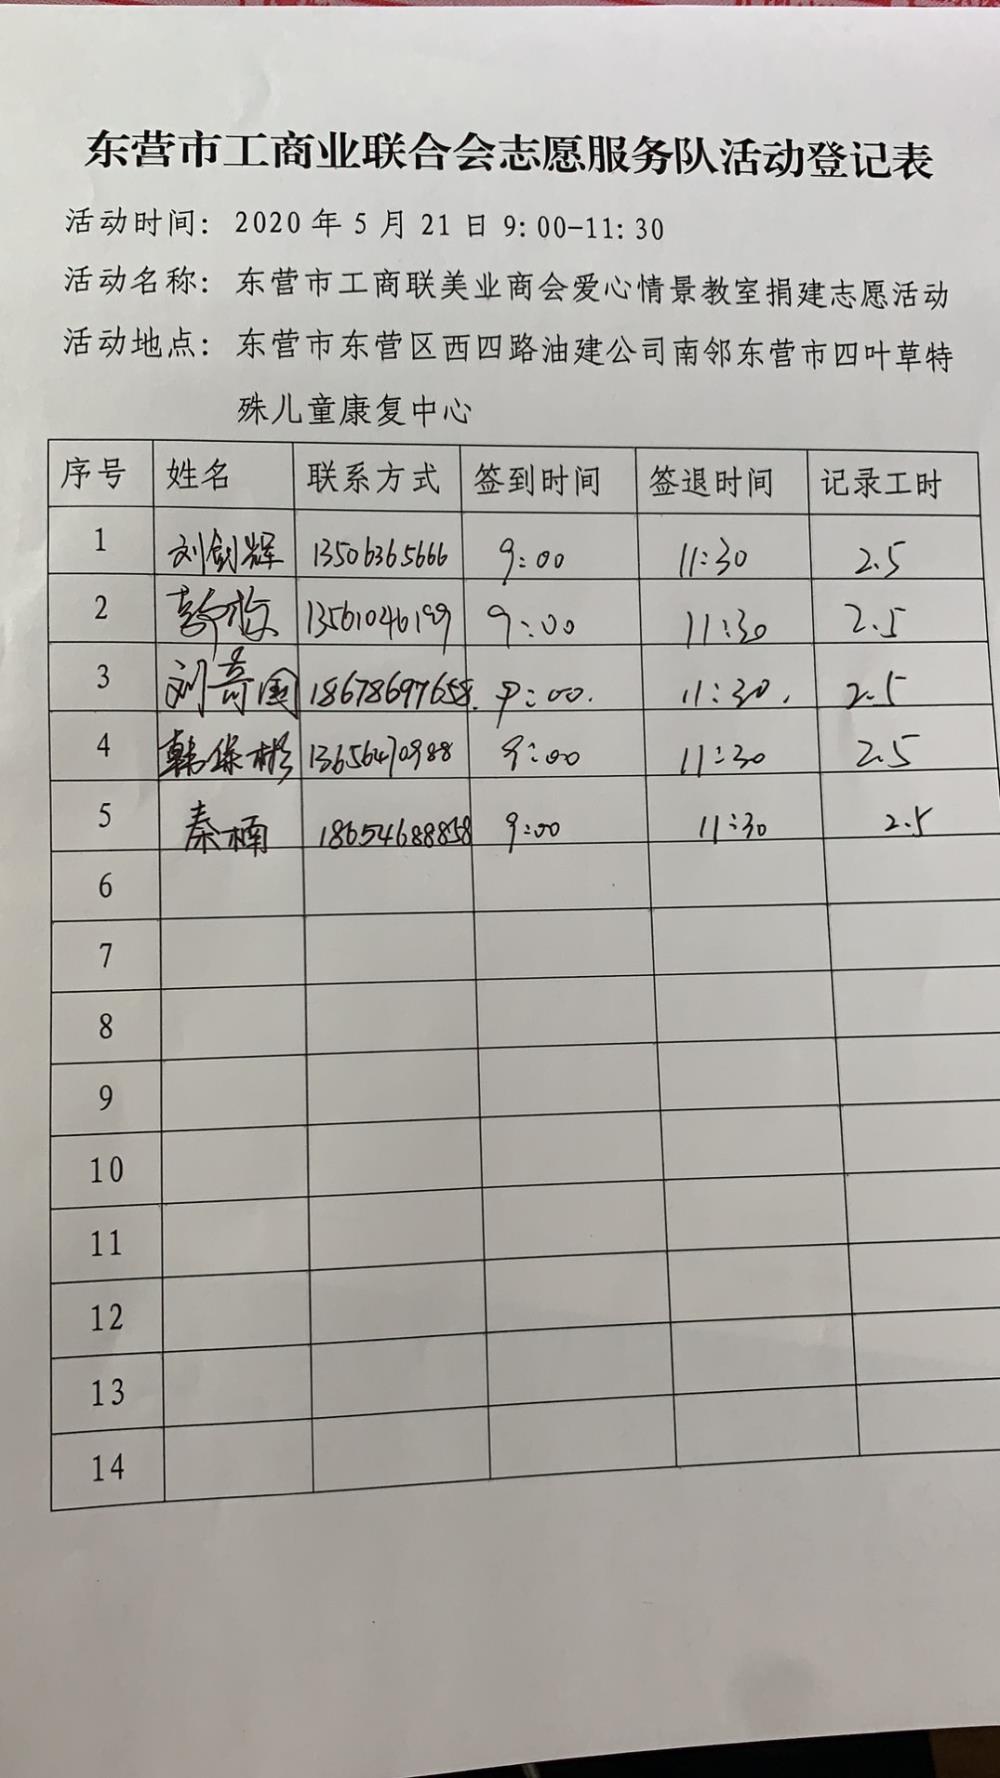 东营市工商业联合会志愿服务队活动登记表
活动时间：2020年5月21日9:00-11:30
活动名称：东营市工商联美业商会爱心情景教室捐建志愿活动
活动地点：东营市东营区西四路油建公司南邻东营市四叶草特
殊儿童康复中心
序号 姓名 联系方式 签到时间 签退时间 记录工时
1 刘剑辉 13506365666 9:00 11:30 2.5
2 彭 13561046199 9:00 11:30 2.5
3 刘奇国 18678697658. 9:00. 11:30. 2.5
4 韩保彬 13656470988 9:00 11:30 2.5
5 秦楠 18654688858 9:00 11:30 2.5
6
7
8
9
10
11
12
13
14